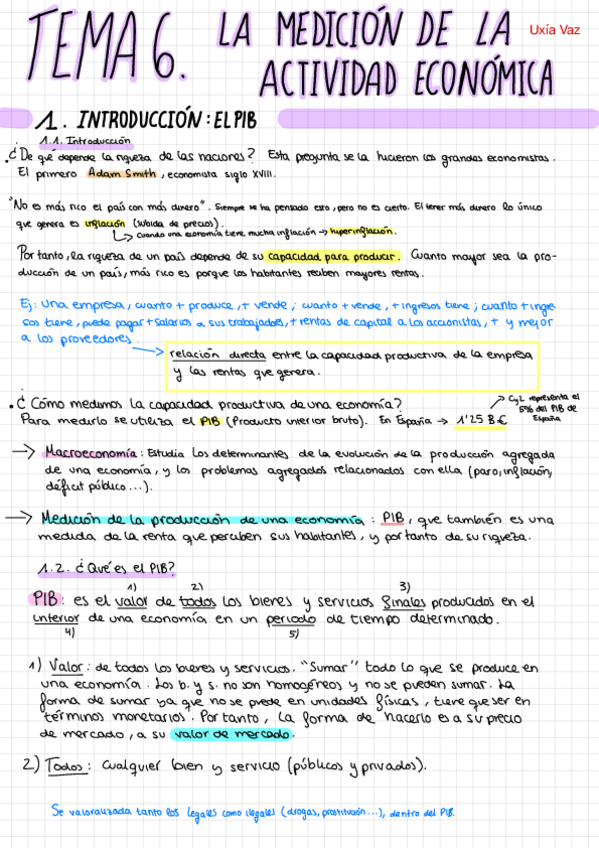 TEMA 6. LA MEDICIÓN DE LA
ACTIVIDAD ECONÓMICA
Uxía Vaz
1. INTRODUCCIÓN: EL PIB
1.1. Introducción
¿De qué depende la riqueza de las naciones? Esta pregunta se la hicieron los grandes economistas.
El primero Adam Smith, economista siglo XVIII.
"No es más rico el país con más dinero". Siempre se ha pensado esto, pero no es cierto. El tener más dinero lo único
que genera es inflación (subida de precios).
↳ Cuando una economía tiene mucha inflación → hiperinflación.
Por tanto, la riqueza de un país depende de su capacidad para producir. Cuanto mayor sea la pro-
ducción de un país, más rico es porque los habitantes reciben mayores rentas.
Ej: Una empresa, cuanto + produce, + vende; cuanto + vende, + ingresos tiene; cuanto + ingre-
sos tiene, puede pagar + salarios a sus trabajadores, + rentas de capital a los accionistas, + y mejor
a los proveedores.
→ relación directa entre la capacidad productiva de la empresa
y las rentas que genera.
· ¿Cómo medimos la capacidad productiva de una economía?
Para medirlo se utiliza el PIB (Producto interior bruto). En España → 1'25 B€
→ CyL representa el
5% del PIB de
España
→ Macroeconomía: Estudia los determinantes de la evolución de la producción agregada
de una economía, y los problemas agregados relacionados con ella (paro, inflación,
déficit público...).
→ Medición de la producción de una economía: PIB, que también es una
medida de la renta que perciben sus habitantes, y por tanto de su riqueza.
1.2. ¿Qué es el PIB?
1) 2) 3)
PIB: es el valor de todos los bienes y servicios finales producidos en el
interior de una economía en un periodo de tiempo determinado.
4) 5)
1) Valor: de todos los bienes y servicios. "Sumar" todo lo que se produce en
una economía. Los b. y s. no son homogéneos y no se pueden sumar. La
forma de sumar ya que no se prede en unidades físicas, tiene que ser en
términos monetarios. Por tanto, la forma de hacerlo es a su precio
de mercado, a su valor de mercado.
2) Todos: Cualquier bien y servicio (públicos y privados).
Se valoralizada tanto los legales como ilegales (drogas, prostitución...), dentro del PIB.